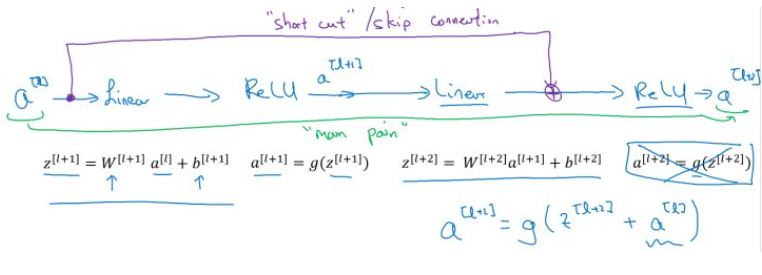 "short cut" / skip connection
a^[l] → Linear → ReLU a^[l+1] → Linear → ReLU → a^[l+2]
"main path"
z^[l+1] = W^[l+1] a^[l] + b^[l+1] a^[l+1] = g(z^[l+1]) z^[l+2] = W^[l+2] a^[l+1] + b^[l+2] a^[l+2] = g(z^[l+2])
a^[l+2] = g(z^[l+2] + a^[l])